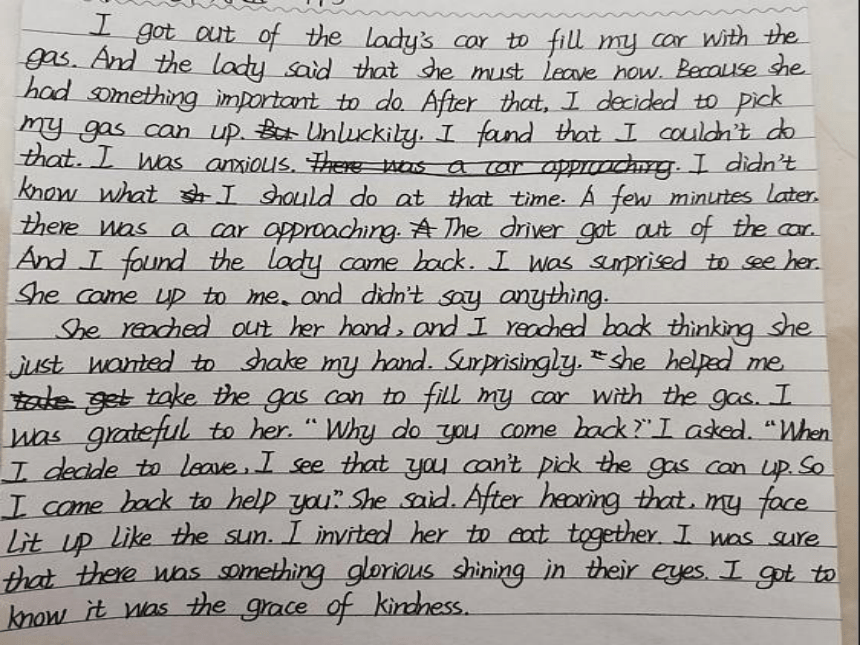 I got out of the lady's car to fill my car with the
gas. And the lady said that she must leave now. Because she
had something important to do. After that, I decided to pick
my gas can up. But Unluckily. I found that I couldn't do
that. I was anxious. There was a car approaching. I didn't
know what sh I should do at that time. A few minutes later.
there was a car approaching. A The driver got out of the car.
And I found the lady came back. I was surprised to see her.
She came up to me. and didn't say anything.
She reached out her hand, and I reached back thinking she
just wanted to shake my hand. Surprisingly. she helped me
take get take the gas can to fill my car with the gas. I
was grateful to her. "Why do you come back?" I asked. "When
I decide to leave, I see that you can't pick the gas can up. So
I come back to help you." She said. After hearing that, my face
lit up like the sun. I invited her to eat together. I was sure
that there was something glorious shining in their eyes. I got to
know it was the grace of kindness.